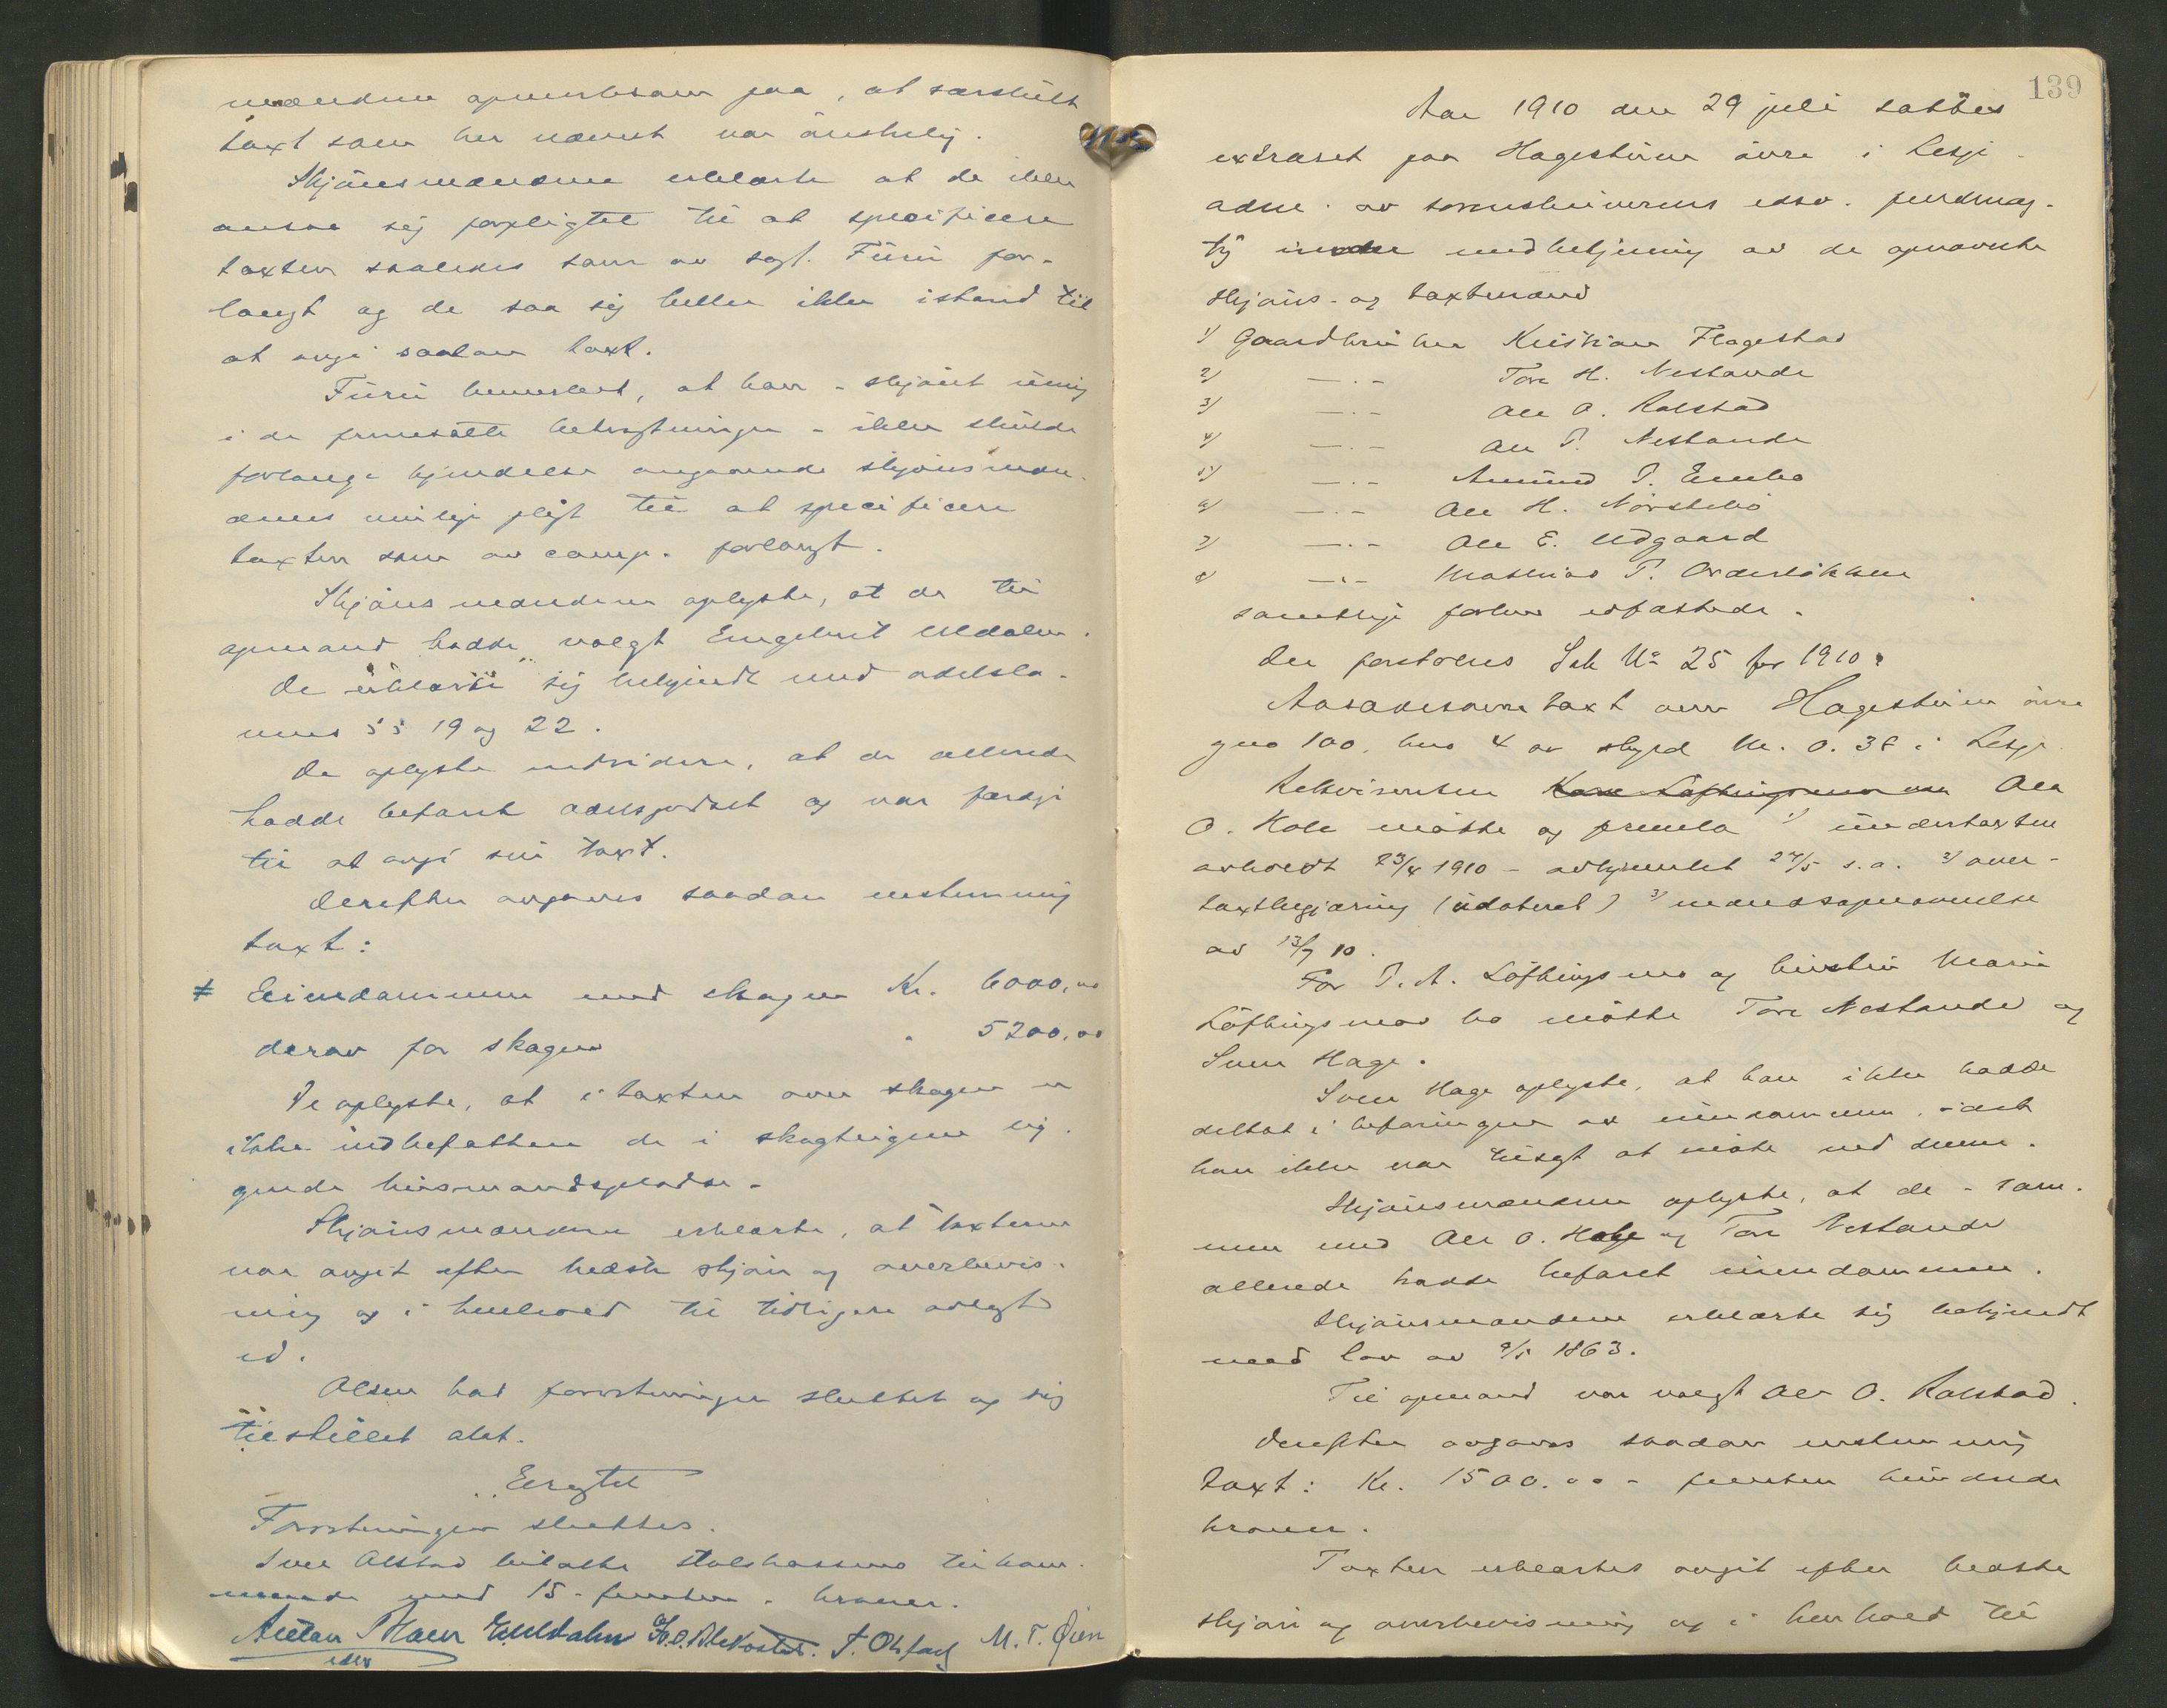 mændene opmerksom paa, at særskilt
taxt som her nævnt var önskelig.
Skjönsmændene erklærte at de ikke
ansaa sig forpligtet til at specificere
taxten saaledes som av sagf. Furu for-
langt og de saa sig heller ikke istand til
at avgi saadan taxt.
Furu bemerket, at han - skjönt uenig
i de fremsatte betragtninger - ikke skulde
forlange kjendelse angaaende skjönsmæn-
denes mulige pligt til at specificere
taxten som av comp. forlangt.
Skjönsmændene oplyste, at de til
opmand hadde valgt Engebret Uldalen.
De erklærte sig bekjendt med odelslo-
vens §§ 19 og 22.
De oplyste endvidere, at de allerede
hadde befaret odelsgodset og var færdige
til at avgi sin taxt.
Derefter avgaves saadan enstemmig
taxt:
Eiendommen med skogen Kr. 6000,00
derav for skogen " 5200,00
De oplyste, at i taxten over skogen er
ikke indbefattet de i skogteigene lig-
gende husmandspladse.
Skjönsmændene erklærte, at taxterne
var avgit efter bedste skjön og overbevis-
ning og i henhold til tidligere avlagt
ed.
Olsen bad forretningen sluttet og sig
tilstillet akt.
Eragtet
Forretningen sluttes.
Iver Alstad betalte stolskassens tilkom-
mende med 15 - femten - kroner.
M. T. Öien
139
Aar 1910 den 29 juli sattes
extraret paa Hagestuen övre i Lesje
av sorenskriverens edsv. fuldmæg-
tig under medbetjening av de opnævnte
skjöns- og taxtmænd
1) Gaardbruker Kristian Flagestad
2) —.- Tore H. Nestande
3) —.- Ole O. Rolstad
4) —.- Ole P. Nestande
5) —.- Amund P. Enebo
6) —.- Ole H. Norstebö
7) —.- Ole E. Udgaard
8) —.- Mathias P. Orderlökken
samtlige forhen edfæstede.
Der foretoges Sak No 25 for 1910:
Aasædesovertaxt over Hagestuen övre
gno 100, bno 4 av skyld Mk. 0.38 i Lesje.
Rekvirenten Ole
O. Hole mötte og fremla 1) undertaxten
avholdt 23/4 1910 - avhjemlet 24/5 s.a. 2) over-
taxtbegjæring (udateret) 3) mandsopnævnelse
av 13/7 10.
For P. A. Löftingsmo og hustru Marie
Löftingsmo bo mötte Tore Nestande og
Sven Hage.
Sven Hage oplyste, at han ikke hadde
deltat i befaringen av eiendommen, idet
han ikke var tilsagt at möte ved denne.
Skjönsmændene oplyste, at de - sam-
men med Ole O. Hole og Tore Nestande
allerede hadde befaret eiendommen.
Skjönsmændene erklærte sig bekjendt
med lov av 9/5 1863.
Til opmand var valgt Ole O. Rolstad.
Derefter avgaves saadan enstemmig
taxt: Kr. 1500.00 - femten hundrede
kroner.
Taxten erklærtes avgit efter bedste
skjön og overbevisning og i henhold til